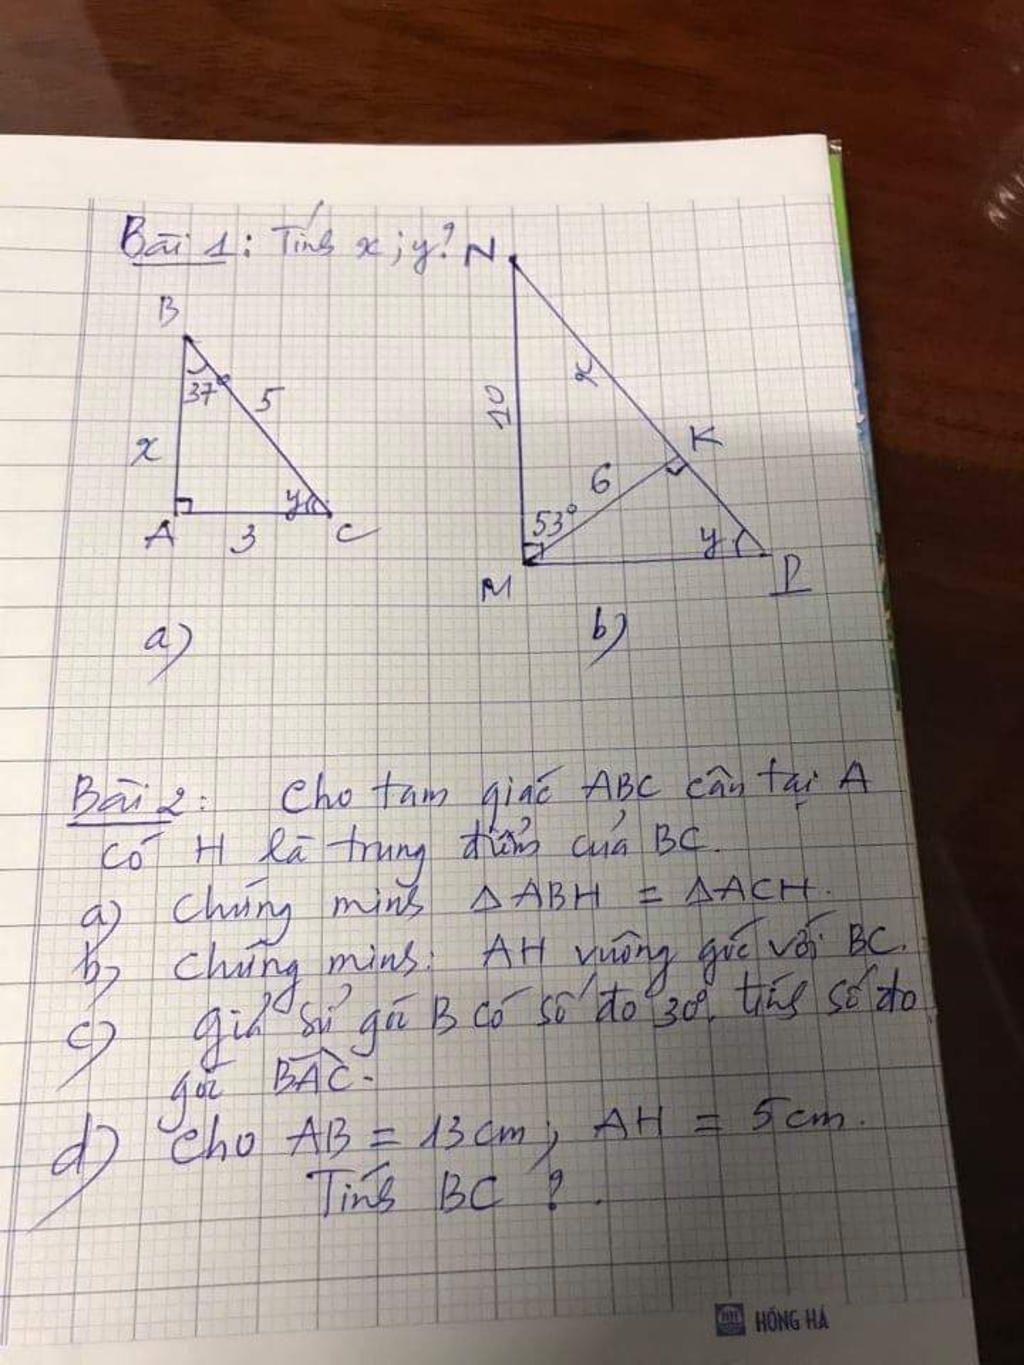 Bài 1: Tính x; y?
B
37°
5
x
y
A
3
C
a)
N
10
x
K
6
53°
y
M
P
b)
Bài 2: Cho tam giác ABC cân tại A
có H là trung điểm của BC.
a) Chứng minh △ABH = △ACH.
b) Chứng minh: AH vuông góc với BC.
c) giả sử góc B có số đo 30°. tính số đo
góc BAC.
d) Cho AB = 13cm; AH = 5cm.
Tính BC ?.
HH HỒNG HÀ